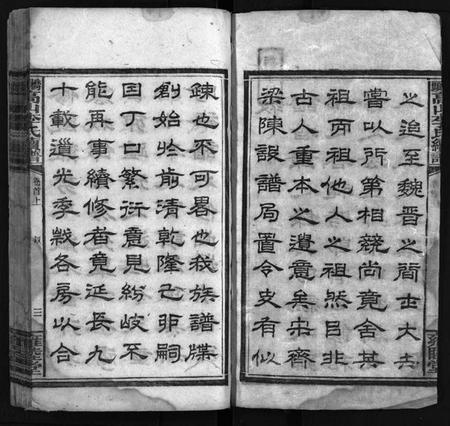 之迨至魏晋之間士大夫
嘗以所第相競尚竟舍其
祖而祖他人之祖然已非
古人重本之遺意矣宋齊
梁陳設譜局置令史有似
諫也不可畧也我族譜牒
創始於前清乾隆己卯嗣
因丁口繁衍意見紛岐不
能再事續修者竟延長九
十載道光季歲各房以合
高山李氏續譜
卷首上
叙
三
雍睦堂